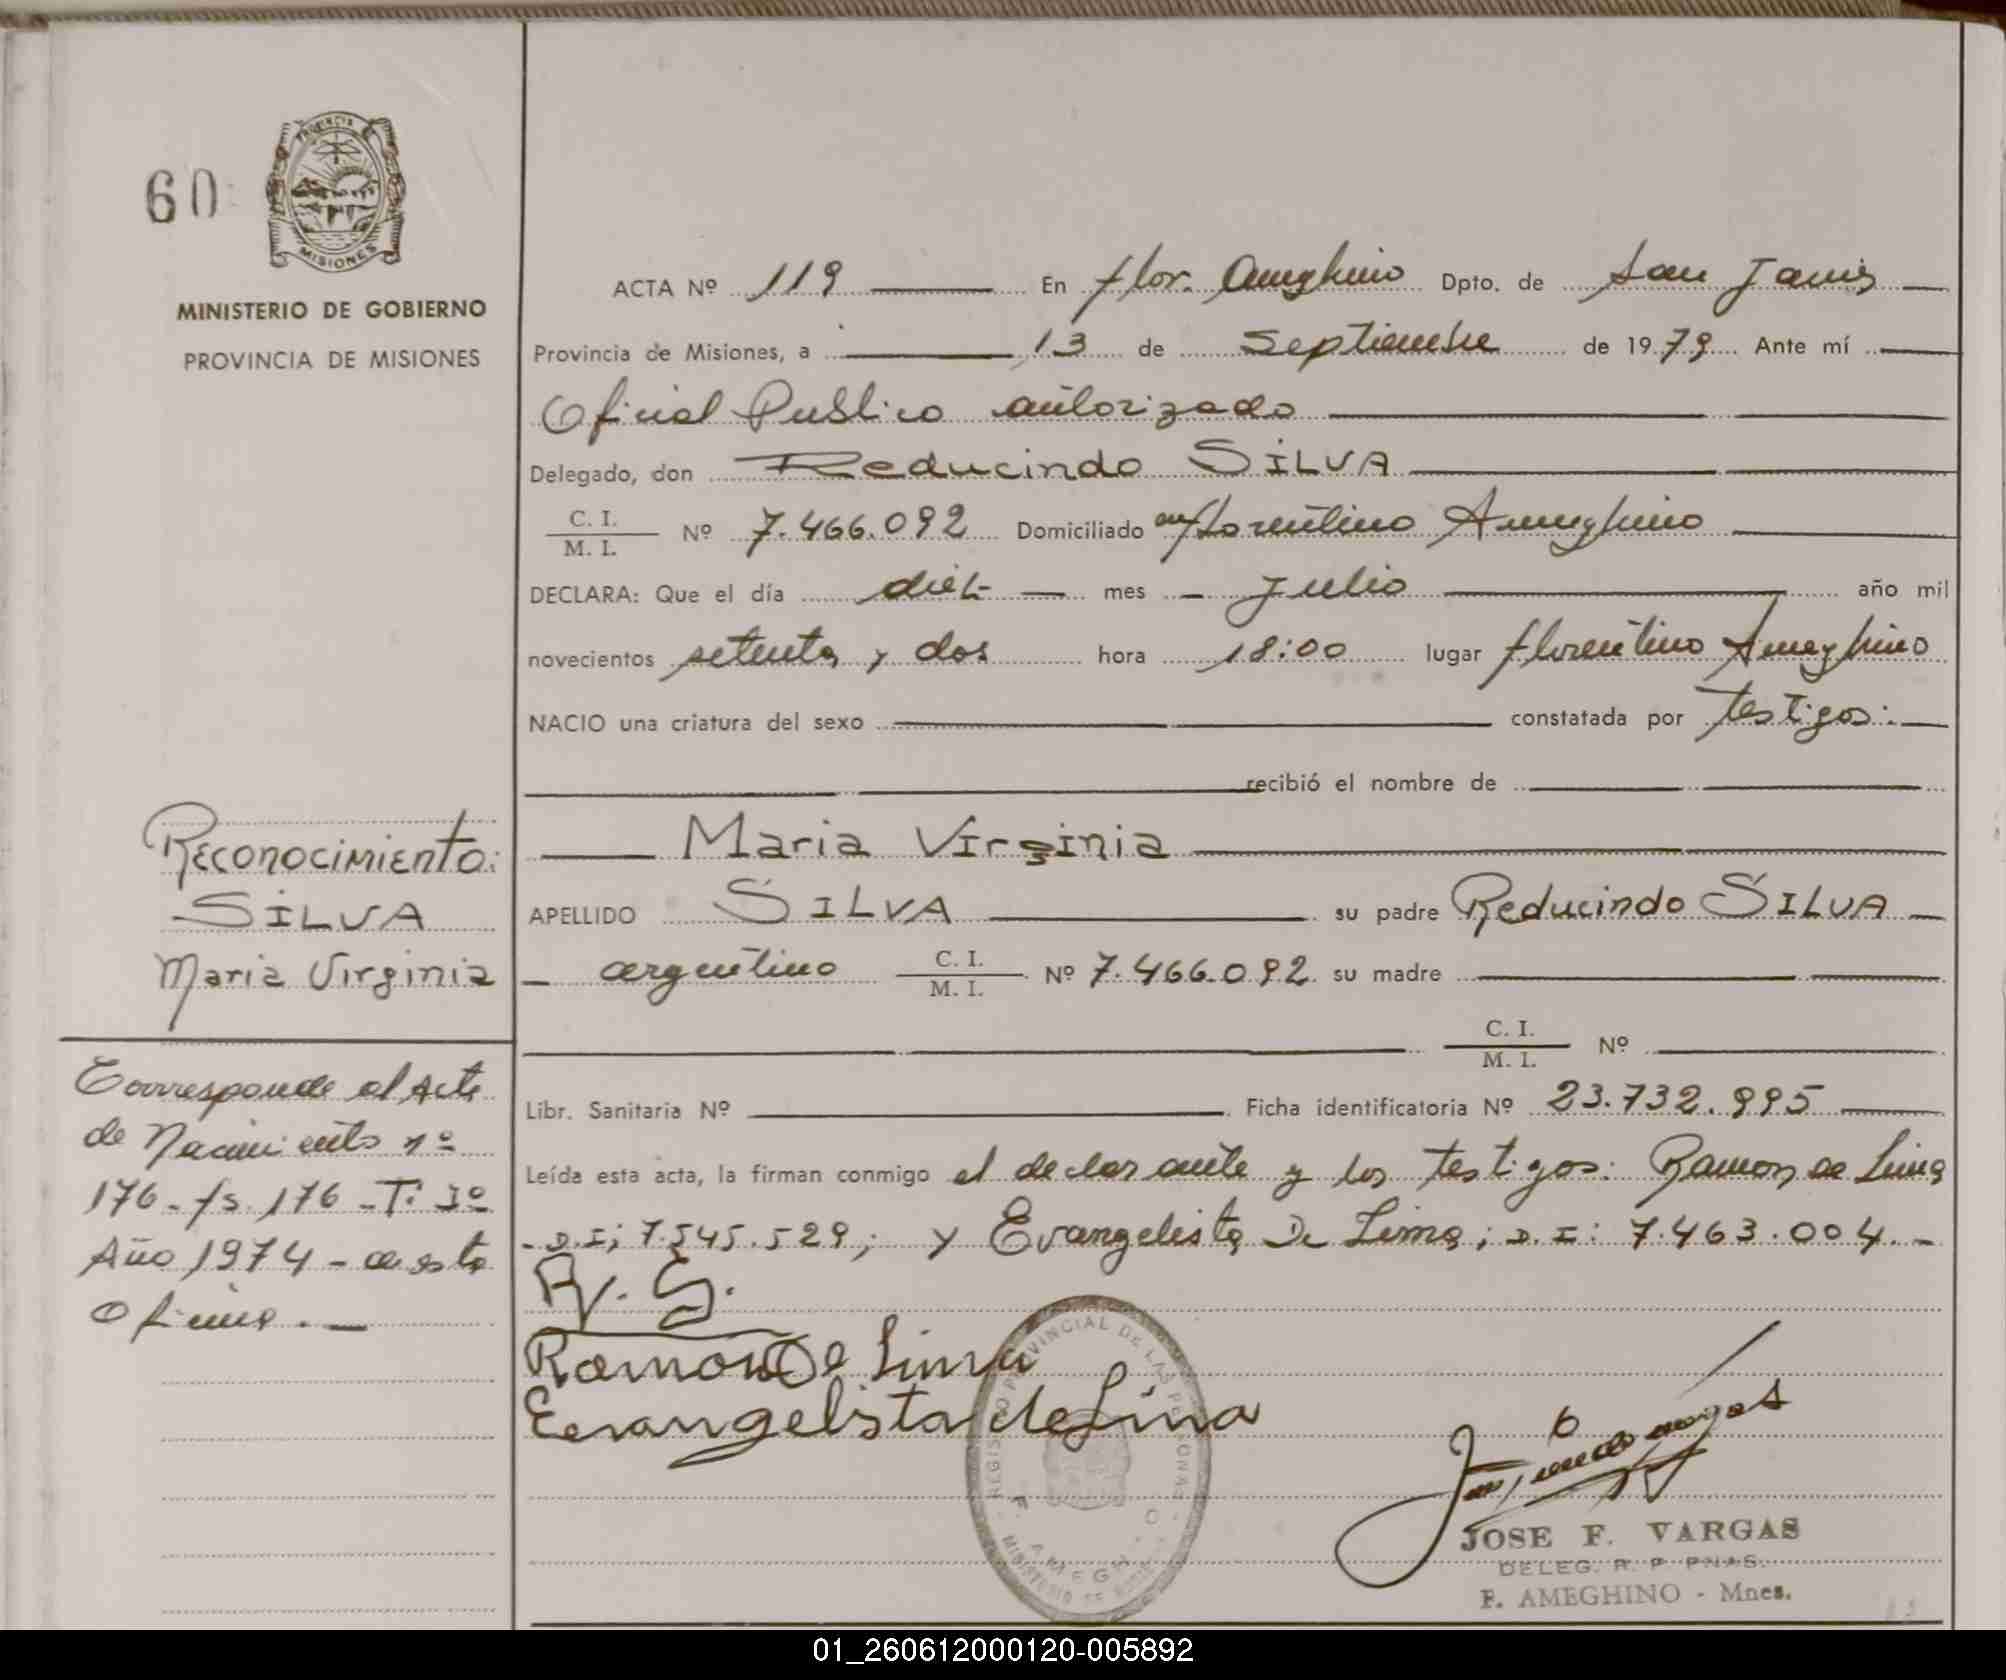 60
PROVINCIA DE
MISIONES
MINISTERIO DE GOBIERNO
PROVINCIA DE MISIONES
ACTA Nº 119 En Flor. Ameghino Dpto. de San Javier
Provincia de Misiones, a 13 de Septiembre de 1979 Ante mí
Oficial Publico autorizado
Delegado, don Reducindo SILVA
C. I.
M. I. Nº 7.466.092 Domiciliado en florentino Ameghino
DECLARA: Que el día diez mes Julio año mil
novecientos setenta y dos hora 18:00 lugar florentino Ameghino
NACIO una criatura del sexo constatada por testigos:
recibió el nombre de
Maria Virginia
APELLIDO SILVA su padre Reducindo SILVA
argentino C. I.
M. I. Nº 7.466.092 su madre
C. I.
M. I. Nº
Libr. Sanitaria Nº Ficha identificatoria Nº 23.732.995
Leída esta acta, la firman conmigo el declarante y los testigos: Ramon de Lima
D.I; 7.545.529; y Evangelista De Lima; D.I: 7.463.004.-
R. S.
Ramon De Lima
Evangelista de Lima
Reconocimiento:
SILVA
Maria Virginia
Corresponde al Acta
de Nacimiento nº
176-fs.176-T: Iº
Año 1974 - de esta
Oficina.-
REGISTRO PROVINCIAL DE LAS PERSONAS
F. AMEGHINO
JOSE F. VARGAS
DELEG. R. P. PNAS.
F. AMEGHINO - Mnes.
01_260612000120-005892